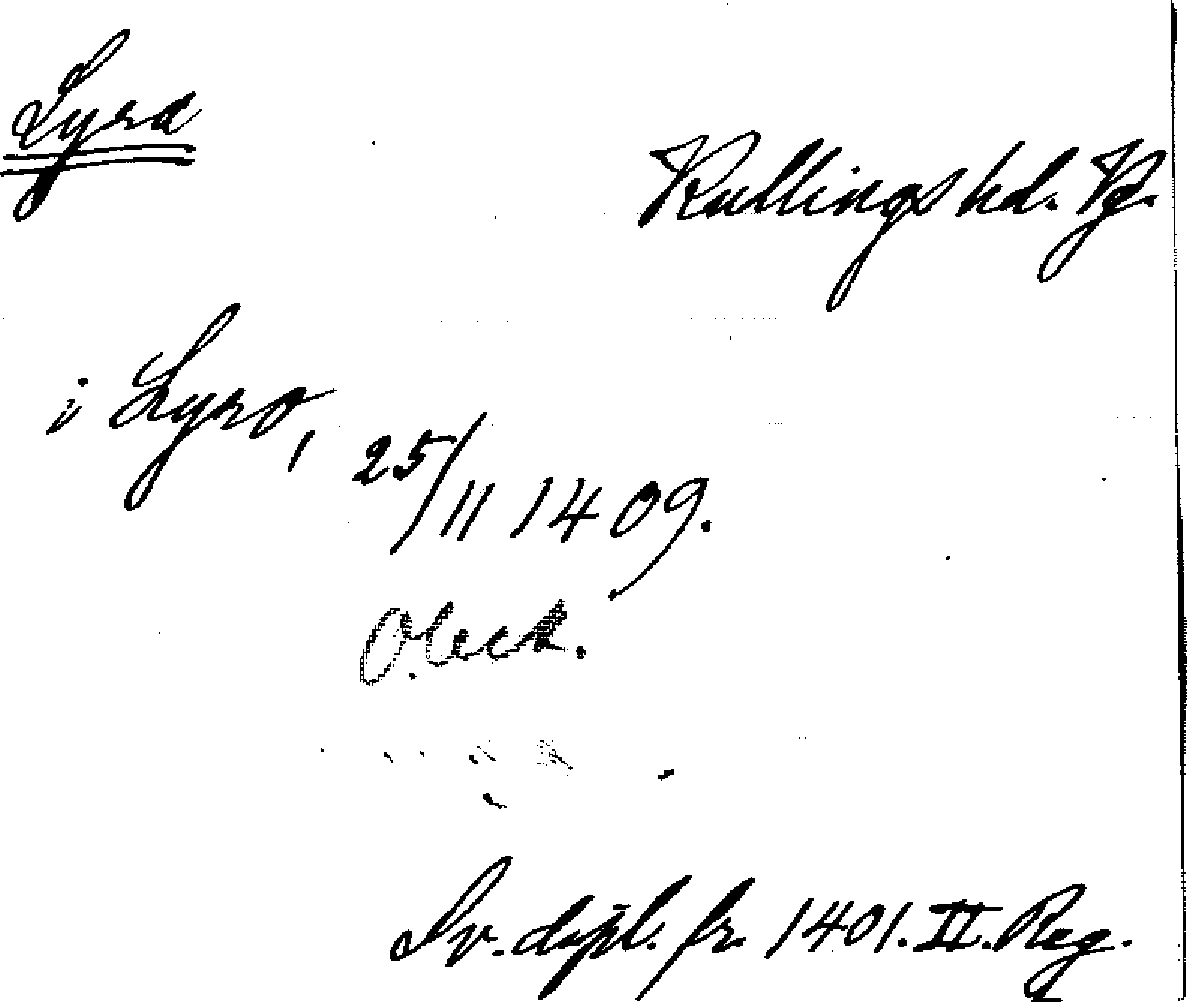 Lyra
Kullings hd. Vg.
i Lyro, 25/11 1409.
O.leck.
Sv. dipl. fr. 1401. II. Reg.